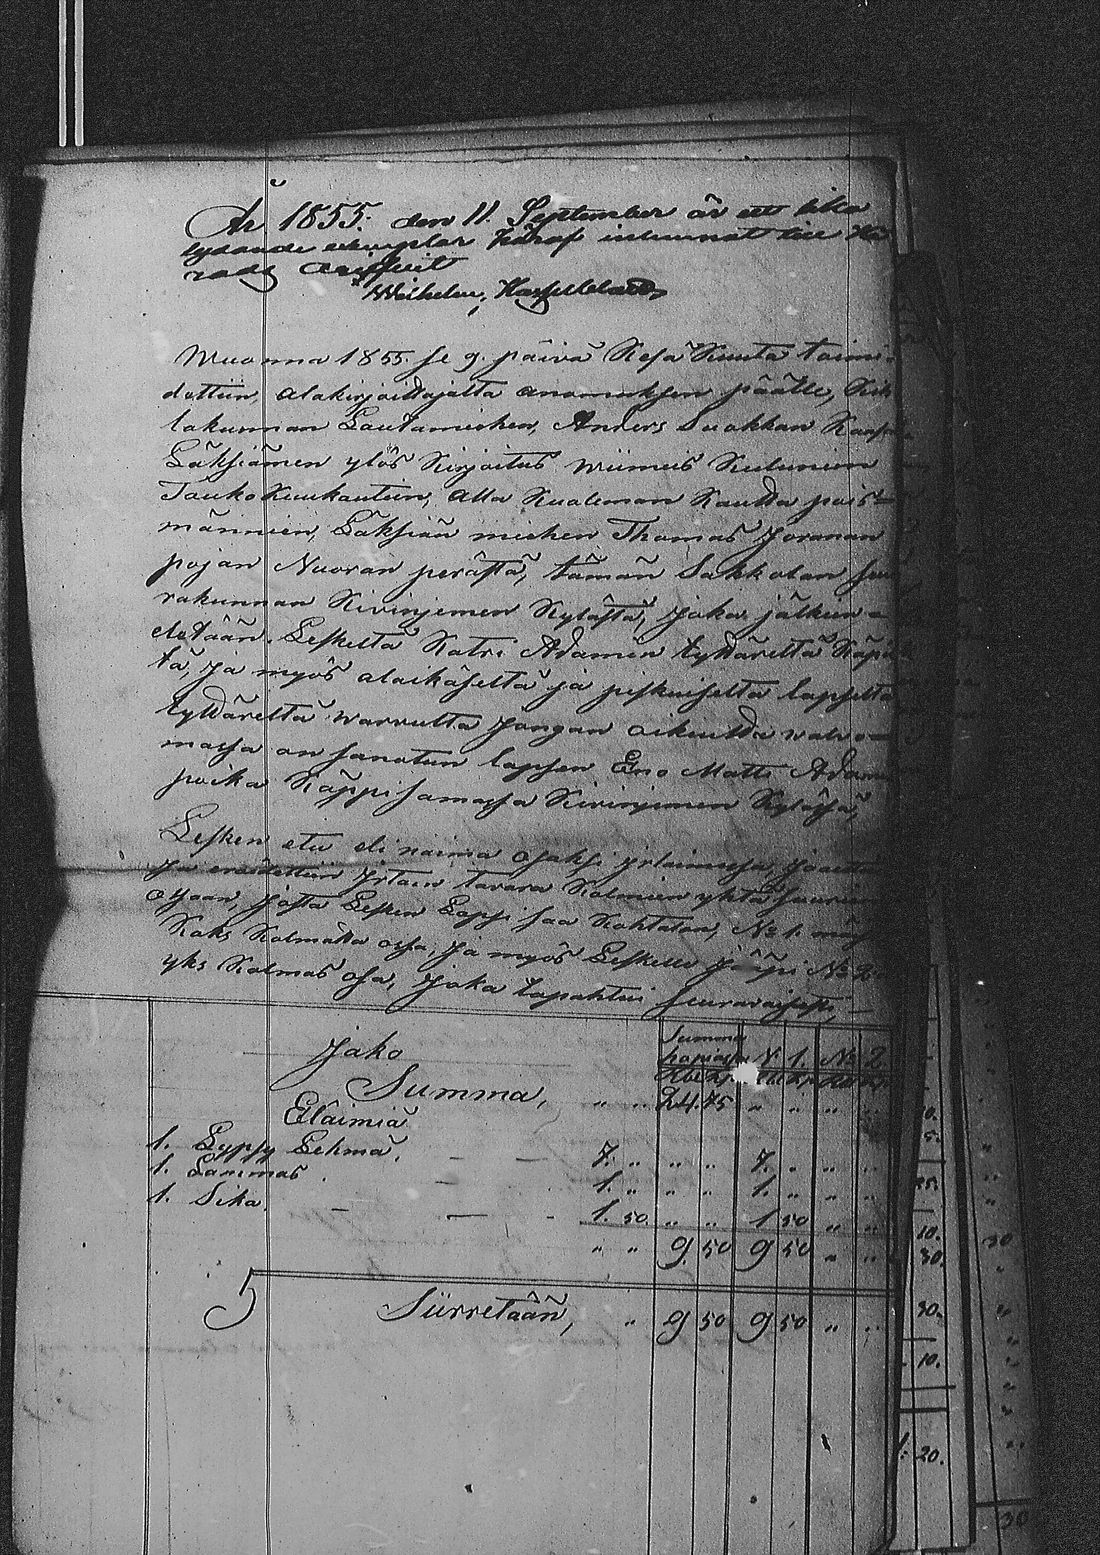 År 1855. den 11. September är ett lika
lydande exemplar häraf inlemnat till Hä
rads Archivit
Wilhelm Hasselblad
Wuonna 1855. se 9. päivä Kesä Kuuta toimi-
dettiin, alakirjoittajalta anomuksen päälle,
lakunnan Lautamiehen, Anders Suokkan
Läksiämen ylös Kirjoitus wiimeis Kuluneen
Tauko Kuukautein, alla Kualeman Kautta pois-
männein, Läksiän miehen Thomas Joranan
pojan Nuoran perästä, tämän Sakkolan seu
rakunnan Kivinjemen Kylästä, joka jälkeen-
eletään. Leskeltä Katri Adamin tyttäreltä
tä, ja myös alaikäseltä ja piskuiselta lapselta
tyttäreltä warrutta jongan oikeutta walvo-
massa on sanotun lapsen Eno Matti Adam
poika Käppi samassa Kivinjemen Kylässä,
Lesken etu eli naima osaksi
ja erädettiin Irtain tavara Kolmeen yhtä suureen
osaan, josta Lesken Lapsi saa Kohtalon, No 1.
Kaks Kolmatta osa, ja myös Leskelle jääpi No 2.
yks Kolmas osa, joka tapahtui seuravaisest,
Jako
Summa
No 1. No 2
Summa, " " 24. 75 " " " "
Eläimiä
1. Lypsy Lehmä. – – 7. " " " 7. " " "
1. Lammas. – 1. " " " 1. " " "
1. Sika. – – - 1. 50. " " 1 50 " "
" " 9. 50 9 50 " "
Siirretään, " 9 50 9 50 " "
10.
30.
30.
10.
1. 20.
30
30